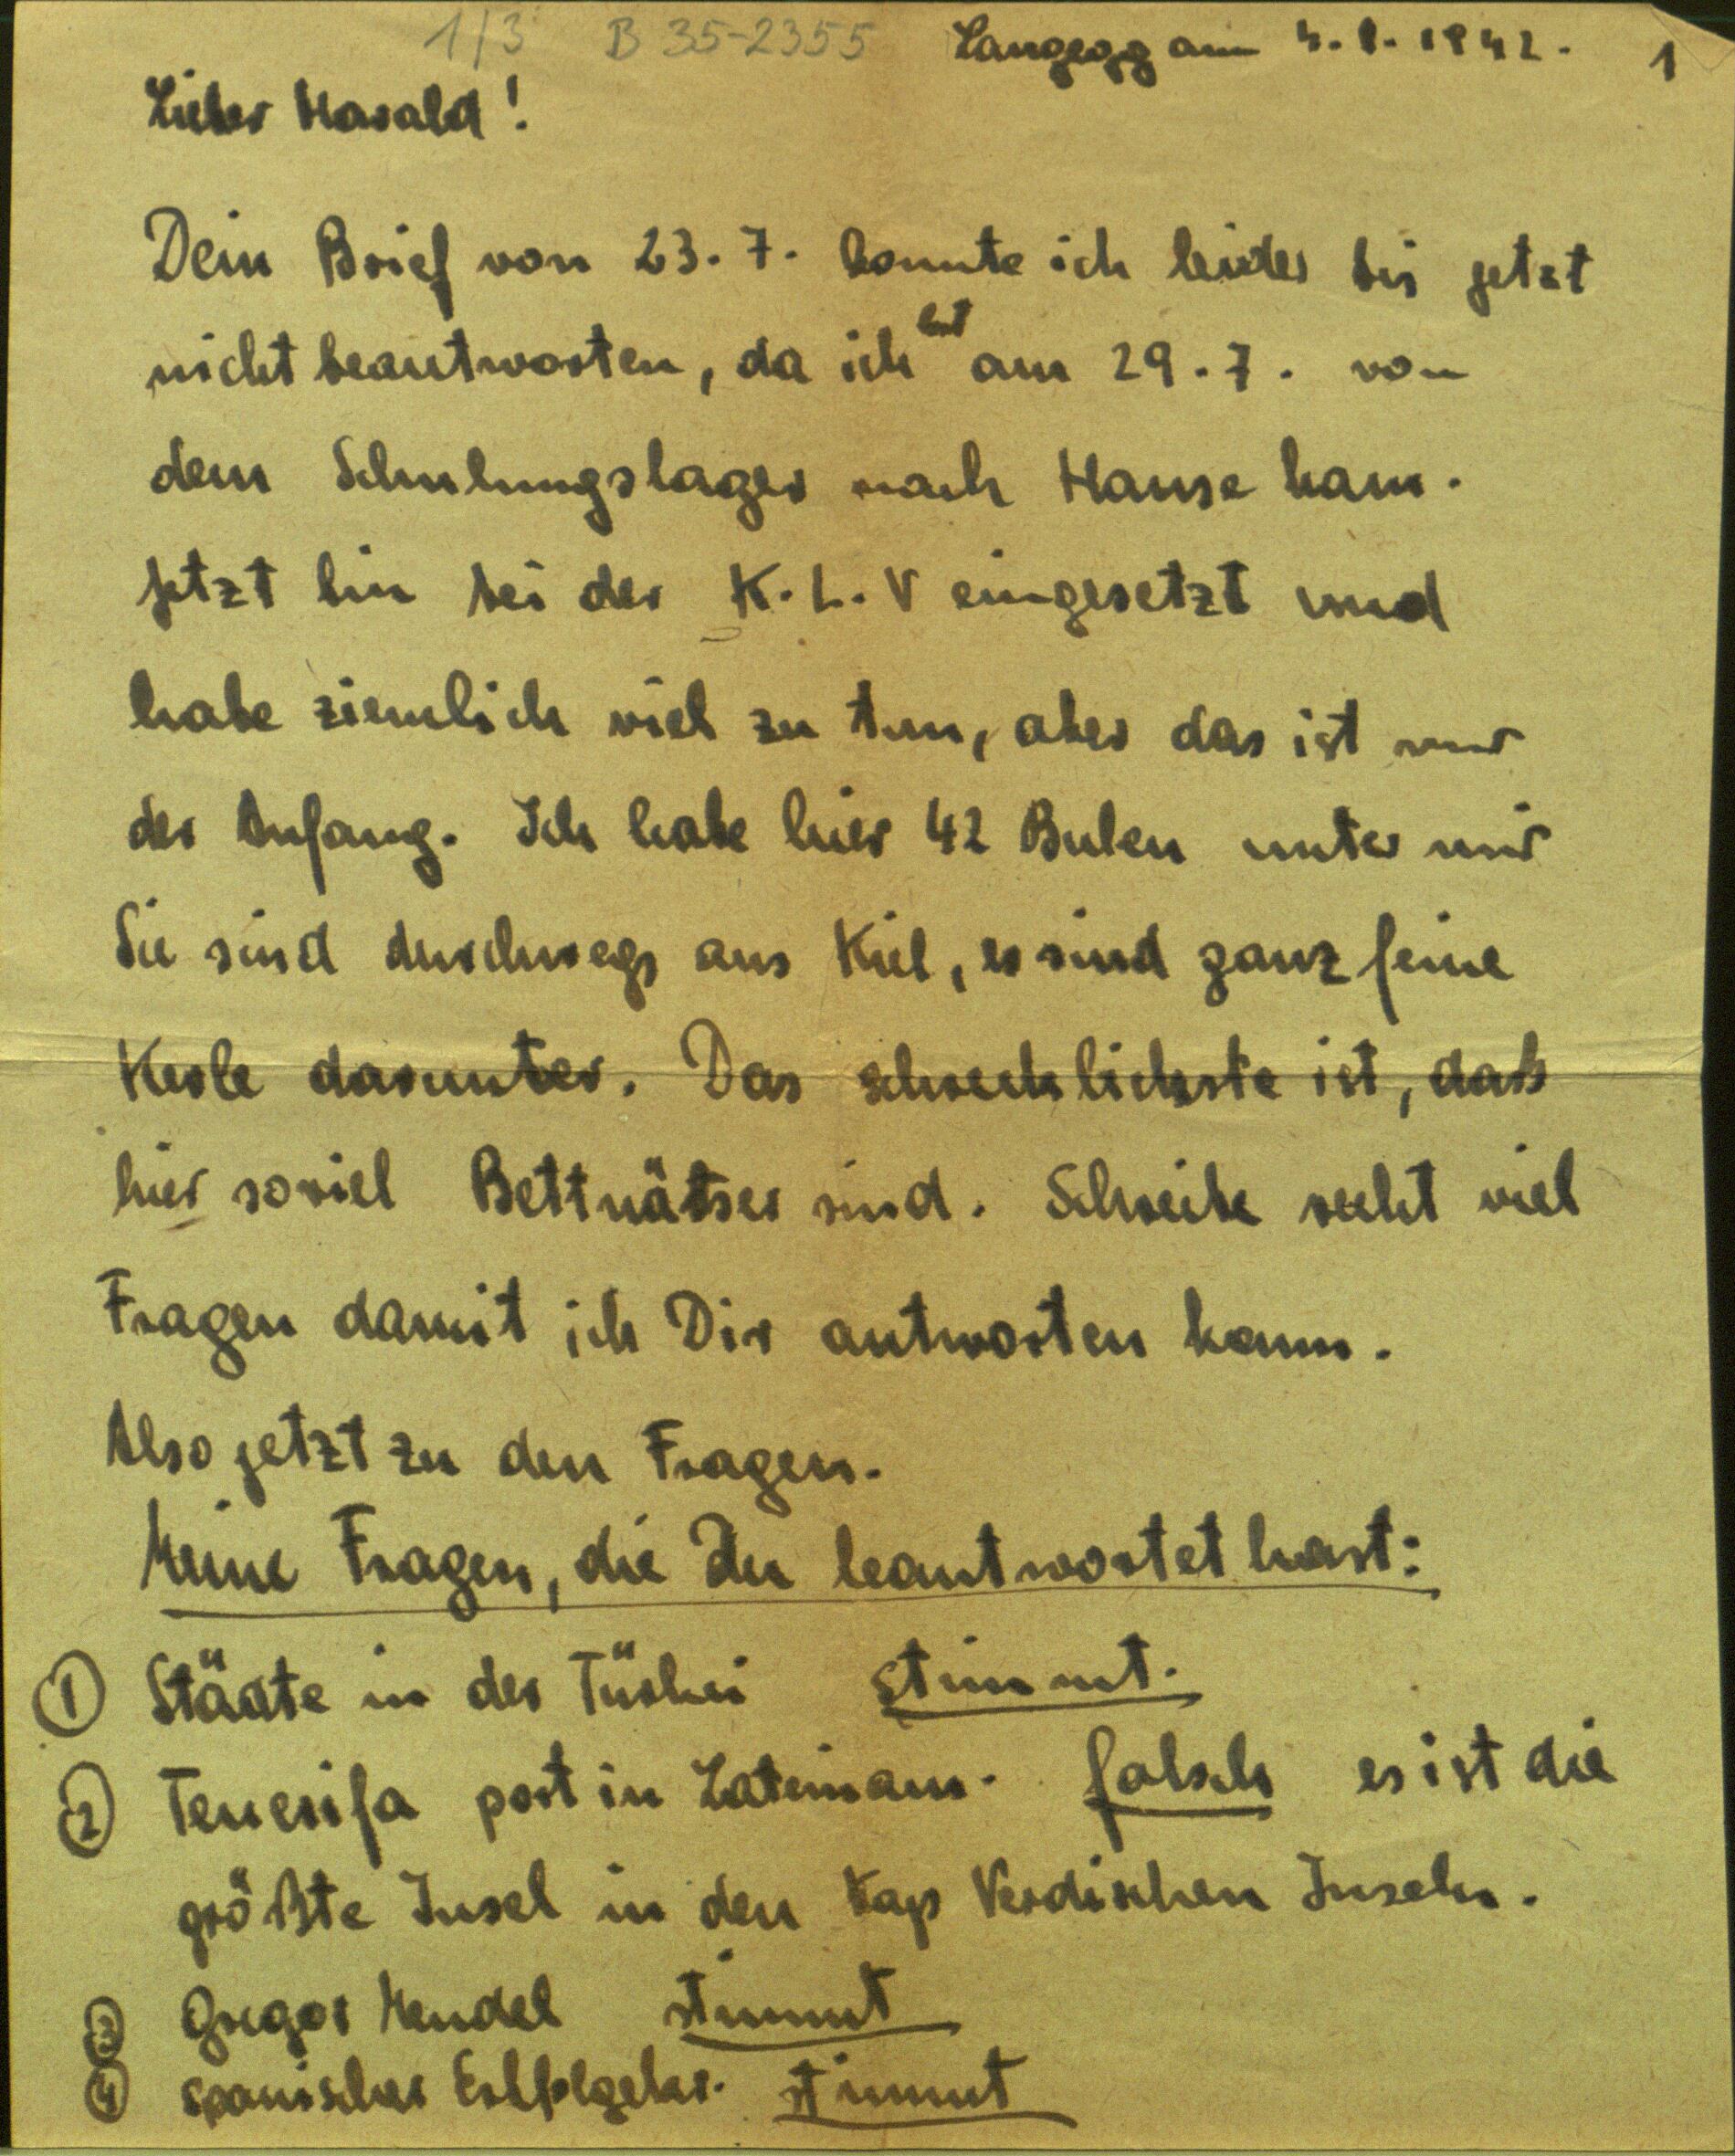 1/3 B 35-2355 Langegg am 4.8.1942. 1
Lieber Harald!
Dein Brief von 23.7. konnte ich leider bis jetzt
nicht beantworten, da ich erst am 29.7. von
dem Schulungslager nach Hause kam.
Jetzt bin bei der K.L.V eingesetzt und
habe ziemlich viel zu tun, aber das ist nur
der Anfang. Ich habe hier 42 Buben unter mir
Sie sind durchwegs aus Kiel, es sind ganz feine
Kerle darunter. Das schrecklichste ist, daß
hier soviel Bettnässer sind. Schreibe recht viel
Fragen damit ich Dir antworten kann.
Also jetzt zu den Fragen.
Meine Fragen, die Du beantwortet hast:
① Städte in der Türkei stimmt.
② Tenerifa port in Lateinam. falsch es ist die
größte Insel in den Kap Verdischen Inseln.
③ Gregor Mendel stimmt
④ spanischer stimmt